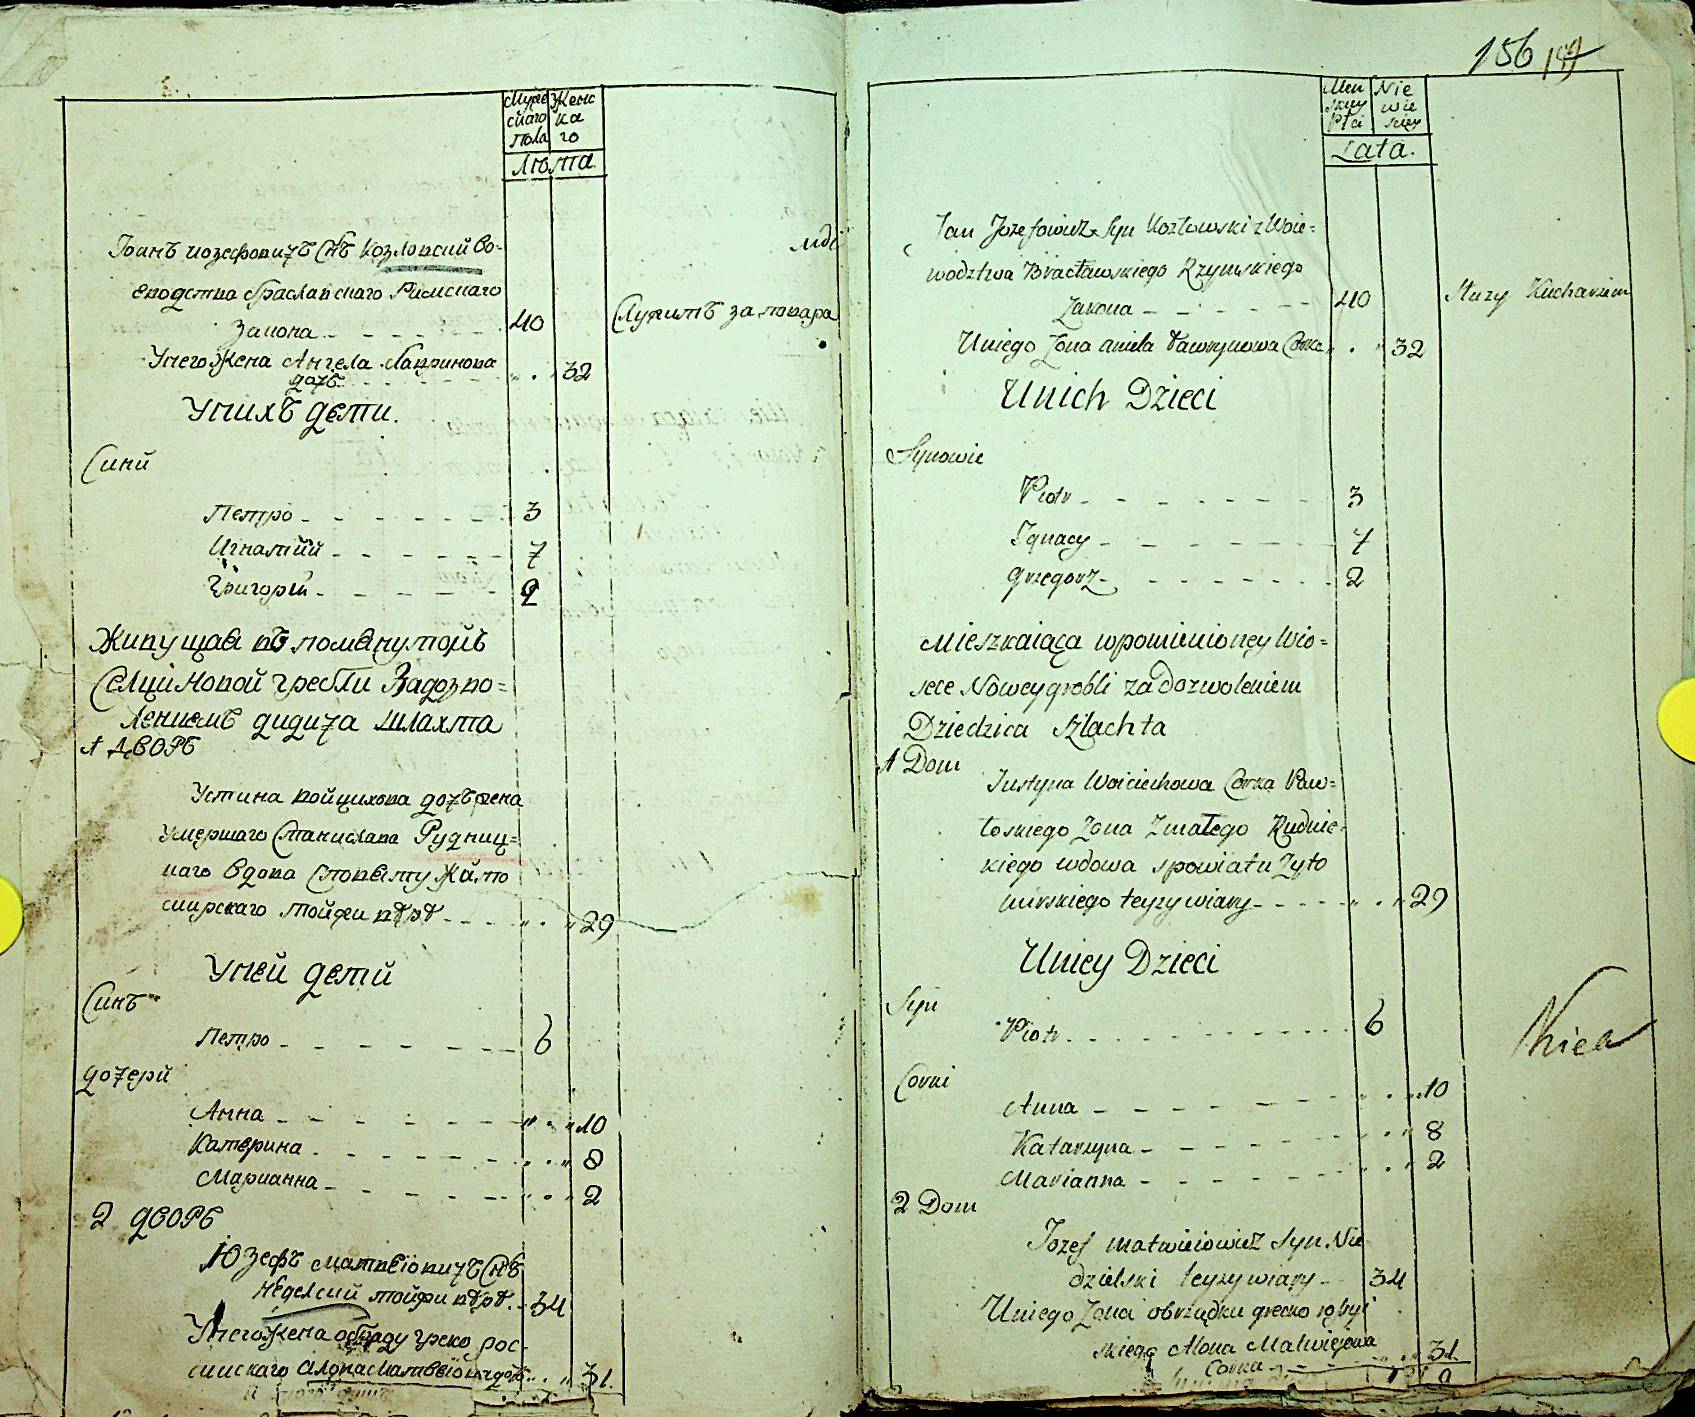 Муже Женс
скаго ка
пола го
Лѣта
Іоанъ иозефовичъ Снъ Козловский во-
еводства браславскаго Римскаго
закона 40 Служитъ за повара
Унего Жена Ангела Лавринова
дочъ 32
Унихъ дети.
Синй
Петро 3
Игнатий 7
Григорій 2
Живущая въ помянутомъ
Селци новой гребли Задозво=
лениемъ дидича шляхта
1 дворъ
Устина войцихова дочъ жена
умершаго Станислава Рудниц=
каго вдова Споветту Жито
мирскаго тойжи вѣрѣ 29
Уней дети
Синъ
Петро 6
дочери
Анна 10
Катерина 8
Марианна 2
2 дворъ
Юзефъ матвіовичъ Снъ
Неделский тойжи вѣрѣ 34
Унего Жена обряду греко рос-
сийскаго 31
156
Men Nie
skiey wie
Płci sciey
Lata.
Jan Jozefowicz Syn Kozłowski z Woie=
wodztwa Bracławskiego Rzymskiego
Zakona 40 Służy Kucharzem
Uniego Zona aniela Wawrynowa Corka 32
Unich Dzieci
Synowie
Piotr 3
Ignacy 7
Grzegorz 2
Mieszkaiąca wpomienioney Wio=
sce Nowey grobli za dozwoleniem
Dziedzica Szlachta
1 Dom
Justyna Woiciechowa Corka Paw=
łoskiego Zona Zmałego Rudnic=
kiego wdowa spowiatu Zyto
mirskiego teyzy wiary 29
Uniey Dzieci
Syn
Piotr 6
Corki
Anna 10
Katarzyna 8
Marianna 2
2 Dom
Jozef matwieiowicz Syn Nie
dzielski teyzy wiary 34
Uniego Zona obrządku greko roßyi
skiego Matwiejowa
Corka 31